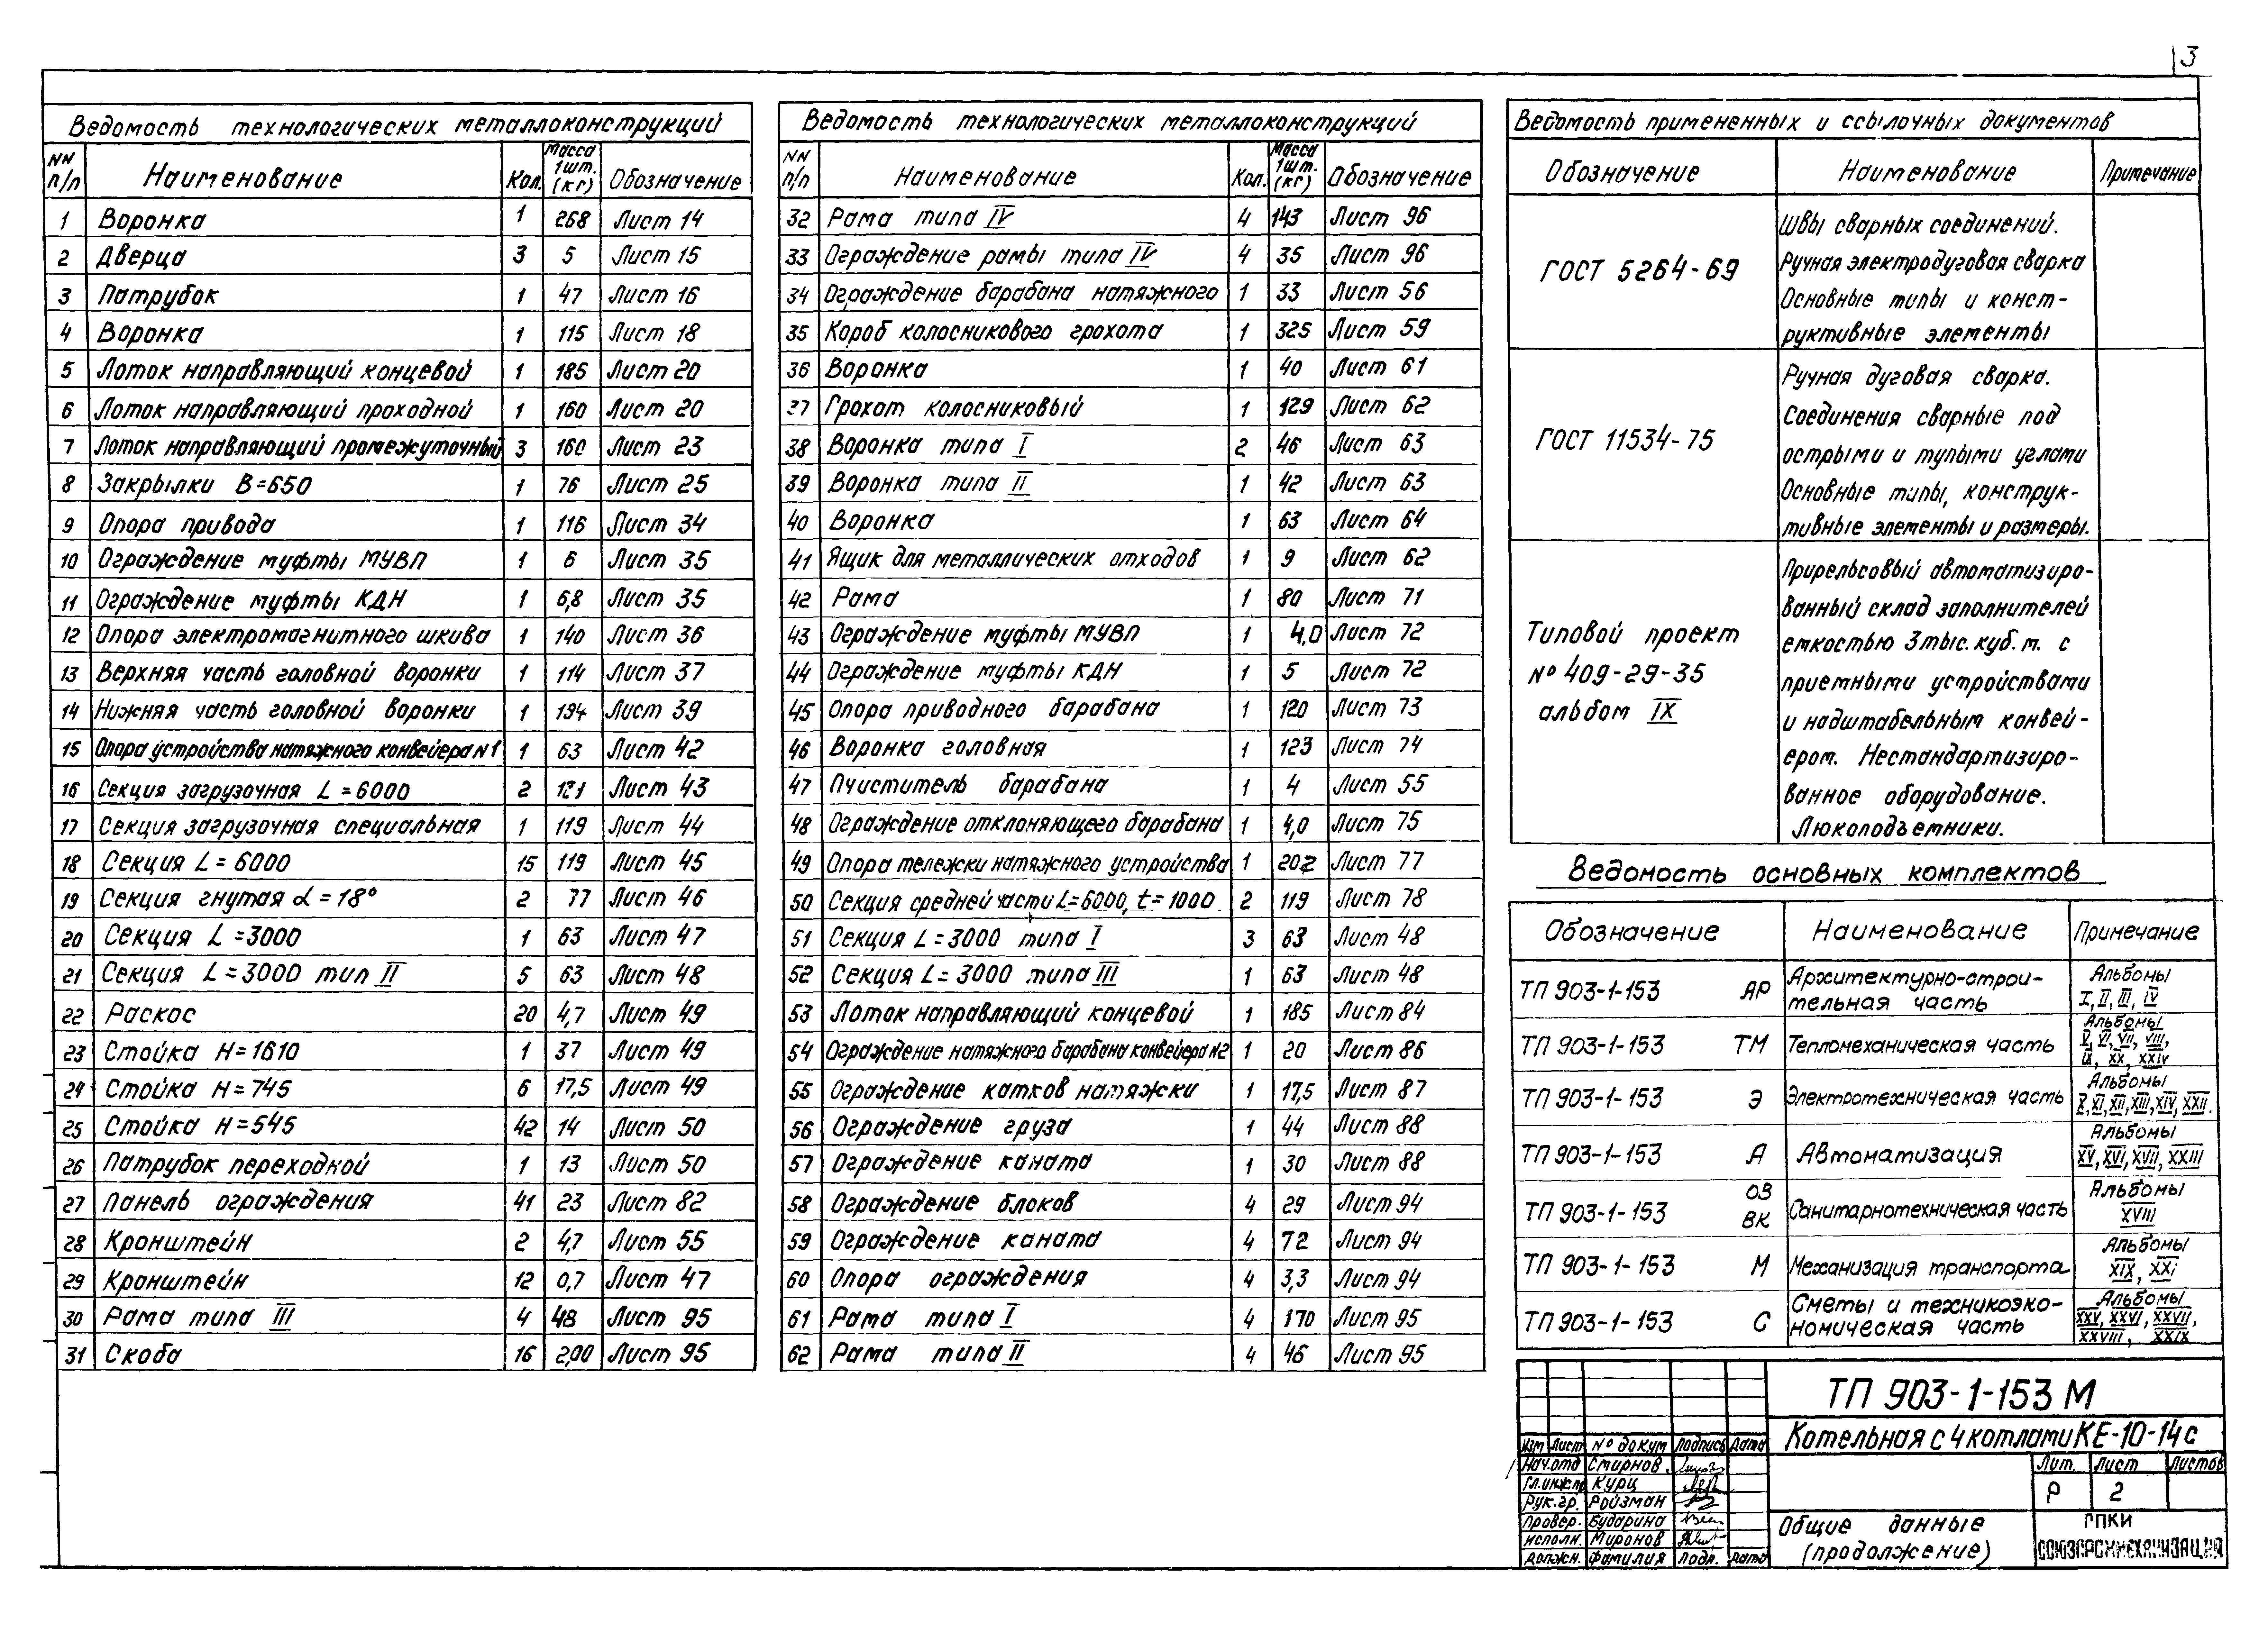 3
Ведомость технологических металлоконструкций
NN п/п Наименование Кол. Масса 1шт. (кг) Обозначение
1 Воронка 1 268 Лист 14
2 Дверца 3 5 Лист 15
3 Патрубок 1 47 Лист 16
4 Воронка 1 115 Лист 18
5 Лоток направляющий концевой 1 185 Лист 20
6 Лоток направляющий проходной 1 160 Лист 20
7 Лоток направляющий промежуточный 3 160 Лист 23
8 Закрылки В=650 1 76 Лист 25
9 Опора привода 1 116 Лист 34
10 Ограждение муфты МУВП 1 6 Лист 35
11 Ограждение муфты КДН 1 6,8 Лист 35
12 Опора электромагнитного шкива 1 140 Лист 36
13 Верхняя часть головной воронки 1 114 Лист 37
14 Нижняя часть головной воронки 1 194 Лист 39
15 Опора устройства натяжного конвейера N1 1 63 Лист 42
16 Секция загрузочная L=6000 2 121 Лист 43
17 Секция загрузочная специальная 1 119 Лист 44
18 Секция L=6000 15 119 Лист 45
19 Секция гнутая α=18° 2 77 Лист 46
20 Секция L=3000 1 63 Лист 47
21 Секция L=3000 тип II 5 63 Лист 48
22 Раскос 20 4,7 Лист 49
23 Стойка Н=1610 1 37 Лист 49
24 Стойка Н=745 6 17,5 Лист 49
25 Стойка Н=545 42 14 Лист 50
26 Патрубок переходной 1 13 Лист 50
27 Панель ограждения 41 23 Лист 82
28 Кронштейн 2 4,7 Лист 55
29 Кронштейн 12 0,7 Лист 47
30 Рама типа III 4 48 Лист 95
31 Скоба 16 2,00 Лист 95
Ведомость технологических металлоконструкций
NN п/п Наименование Кол. Масса 1шт. (кг) Обозначение
32 Рама типа IV 4 143 Лист 96
33 Ограждение рамы типа IV 4 35 Лист 96
34 Ограждение барабана натяжного 1 33 Лист 56
35 Короб колосникового грохота 1 325 Лист 59
36 Воронка 1 40 Лист 61
37 Грохот колосниковый 1 129 Лист 62
38 Воронка типа I 2 46 Лист 63
39 Воронка типа II 1 42 Лист 63
40 Воронка 1 63 Лист 64
41 Ящик для металлических отходов 1 9 Лист 62
42 Рама 1 80 Лист 71
43 Ограждение муфты МУВП 1 4,0 Лист 72
44 Ограждение муфты КДН 1 5 Лист 72
45 Опора приводного барабана 1 120 Лист 73
46 Воронка головная 1 123 Лист 74
47 Пчиститель барабана 1 4 Лист 55
48 Ограждение отклоняющего барабана 1 4,0 Лист 75
49 Опора тележки натяжного устройства 1 202 Лист 77
50 Секция средней части L=6000, t=1000 2 119 Лист 78
51 Секция L=3000 типа I 3 63 Лист 48
52 Секция L=3000 типа III 1 63 Лист 48
53 Лоток направляющий концевой 1 185 Лист 84
54 Ограждение натяжного барабана конвейера N2 1 20 Лист 86
55 Ограждение катков натяжки 1 17,5 Лист 87
56 Ограждение груза 1 44 Лист 88
57 Ограждение каната 1 30 Лист 88
58 Ограждение блоков 4 29 Лист 94
59 Ограждение каната 4 72 Лист 94
60 Опора ограждения 4 3,3 Лист 94
61 Рама типа I 4 170 Лист 95
62 Рама типа II 4 46 Лист 95
Ведомость примененных и ссылочных документов
Обозначение Наименование Примечание
ГОСТ 5264-69
Швы сварных соединений.
Ручная электродуговая сварка
Основные типы и конст-
руктивные элементы
ГОСТ 11534-75
Ручная дуговая сварка.
Соединения сварные под
острыми и тупыми углами
Основные типы, конструк-
тивные элементы и размеры.
Типовой проект
№ 409-29-35
альбом IX
Прирельсовый автоматизиро-
ванный склад заполнителей
емкостью 3 тыс. куб. м. с
приемными устройствами
и надштабельным конвей-
ером. Нестандартизиро-
ванное оборудование.
Люкоподъемники.
Ведомость основных комплектов
Обозначение Наименование Примечание
ТП 903-1-153 АР Архитектурно-строи-
тельная часть
Альбомы
I, II, III, IV
ТП 903-1-153 ТМ Тепломеханическая часть
Альбомы
V, VI, VII, VIII,
IX, XX, XXIV
ТП 903-1-153 Э Электротехническая часть
Альбомы
X, XI, XII, XIII, XIV, XXII.
ТП 903-1-153 А Автоматизация
Альбомы
XV, XVI, XVII, XXIII
ТП 903-1-153 ОВ
ВК
Санитарнотехническая часть
Альбомы
XVIII
ТП 903-1-153 М Механизация транспорта
Альбомы
XIX, XXI
ТП 903-1-153 С Сметы и техникоэко-
номическая часть
Альбомы
XXV, XXVI, XXVII,
XXVIII, XXIX
ТП 903-1-153 М
Котельная с 4 котлами КЕ-10-14с
Изм Лист № докум Подпись Дата
Нач.отд Смирнов
Гл.инж.пр Курц
Рук.гр. Ройзман
Провер. Бударина
исполн. Миронов
должн. фамилия подп. дата
Лит. Лист Листов
Р 2
Общие данные
(продолжение)
ГПКИ